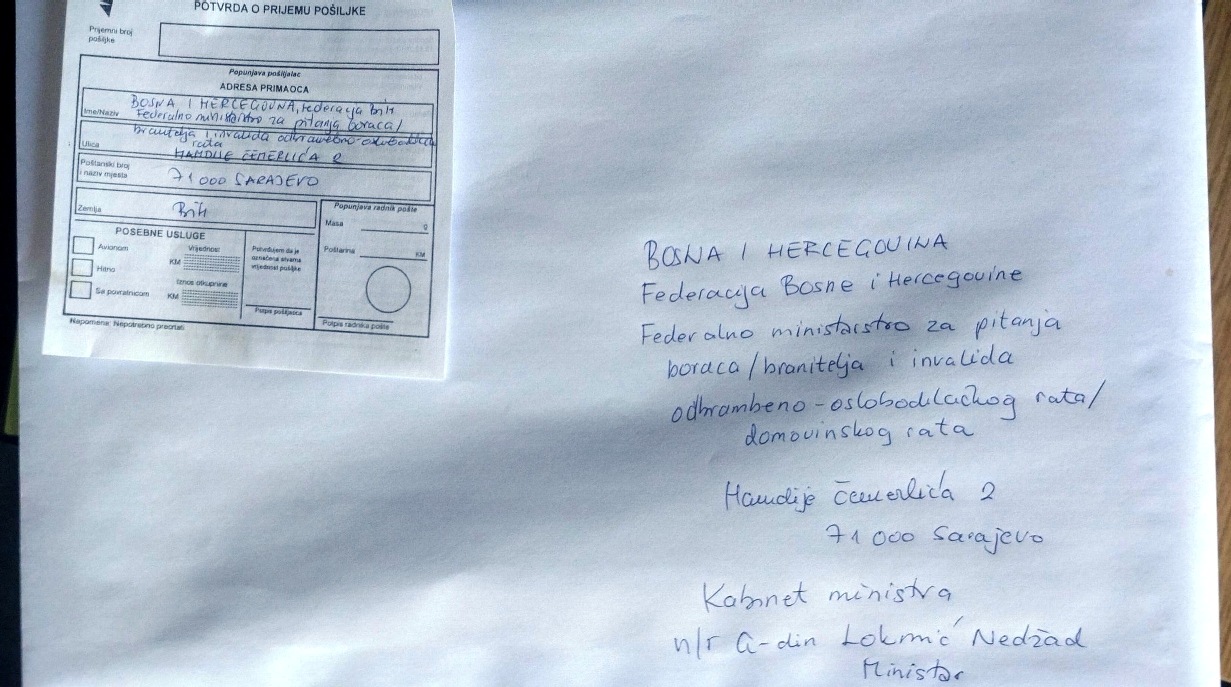 POTVRDA O PRIJEMU POŠILJKE
Prijemni broj
pošiljke
Popunjava pošiljalac
ADRESA PRIMAOCA
Ime/Naziv
BOSNA I HERCEGOVINA, Federacija BiH
Federalno ministarstvo za pitanja boraca/
branitelja i invalida odbrambeno-oslobodilačkog
rata
Ulica
HAMDIJE ČEMERLIĆA 2
Poštanski broj
i naziv mjesta
71 000 SARAJEVO
Zemlja
BiH
POSEBNE USLUGE
Avionom
Hitno
Sa povratnicom
Vrijednost
KM
Iznos otkupnine
KM
Potvrđujem da je
označena stvarna
vrijednost pošiljke
Potpis pošiljaoca
Popunjava radnik pošte
Masa g
Poštarina KM
Potpis radnika pošte
Napomena: Nepotrebno precrtati
BOSNA I HERCEGOVINA
Federacija Bosne i Hercegovine
Federalno ministarstvo za pitanja
boraca/branitelja i invalida
odbrambeno-oslobodilačkog rata/
domovinskog rata
Hamdije Čemerlića 2
71 000 Sarajevo
Kabinet ministra
n/r G-din Lokmić Nedžad
Ministar